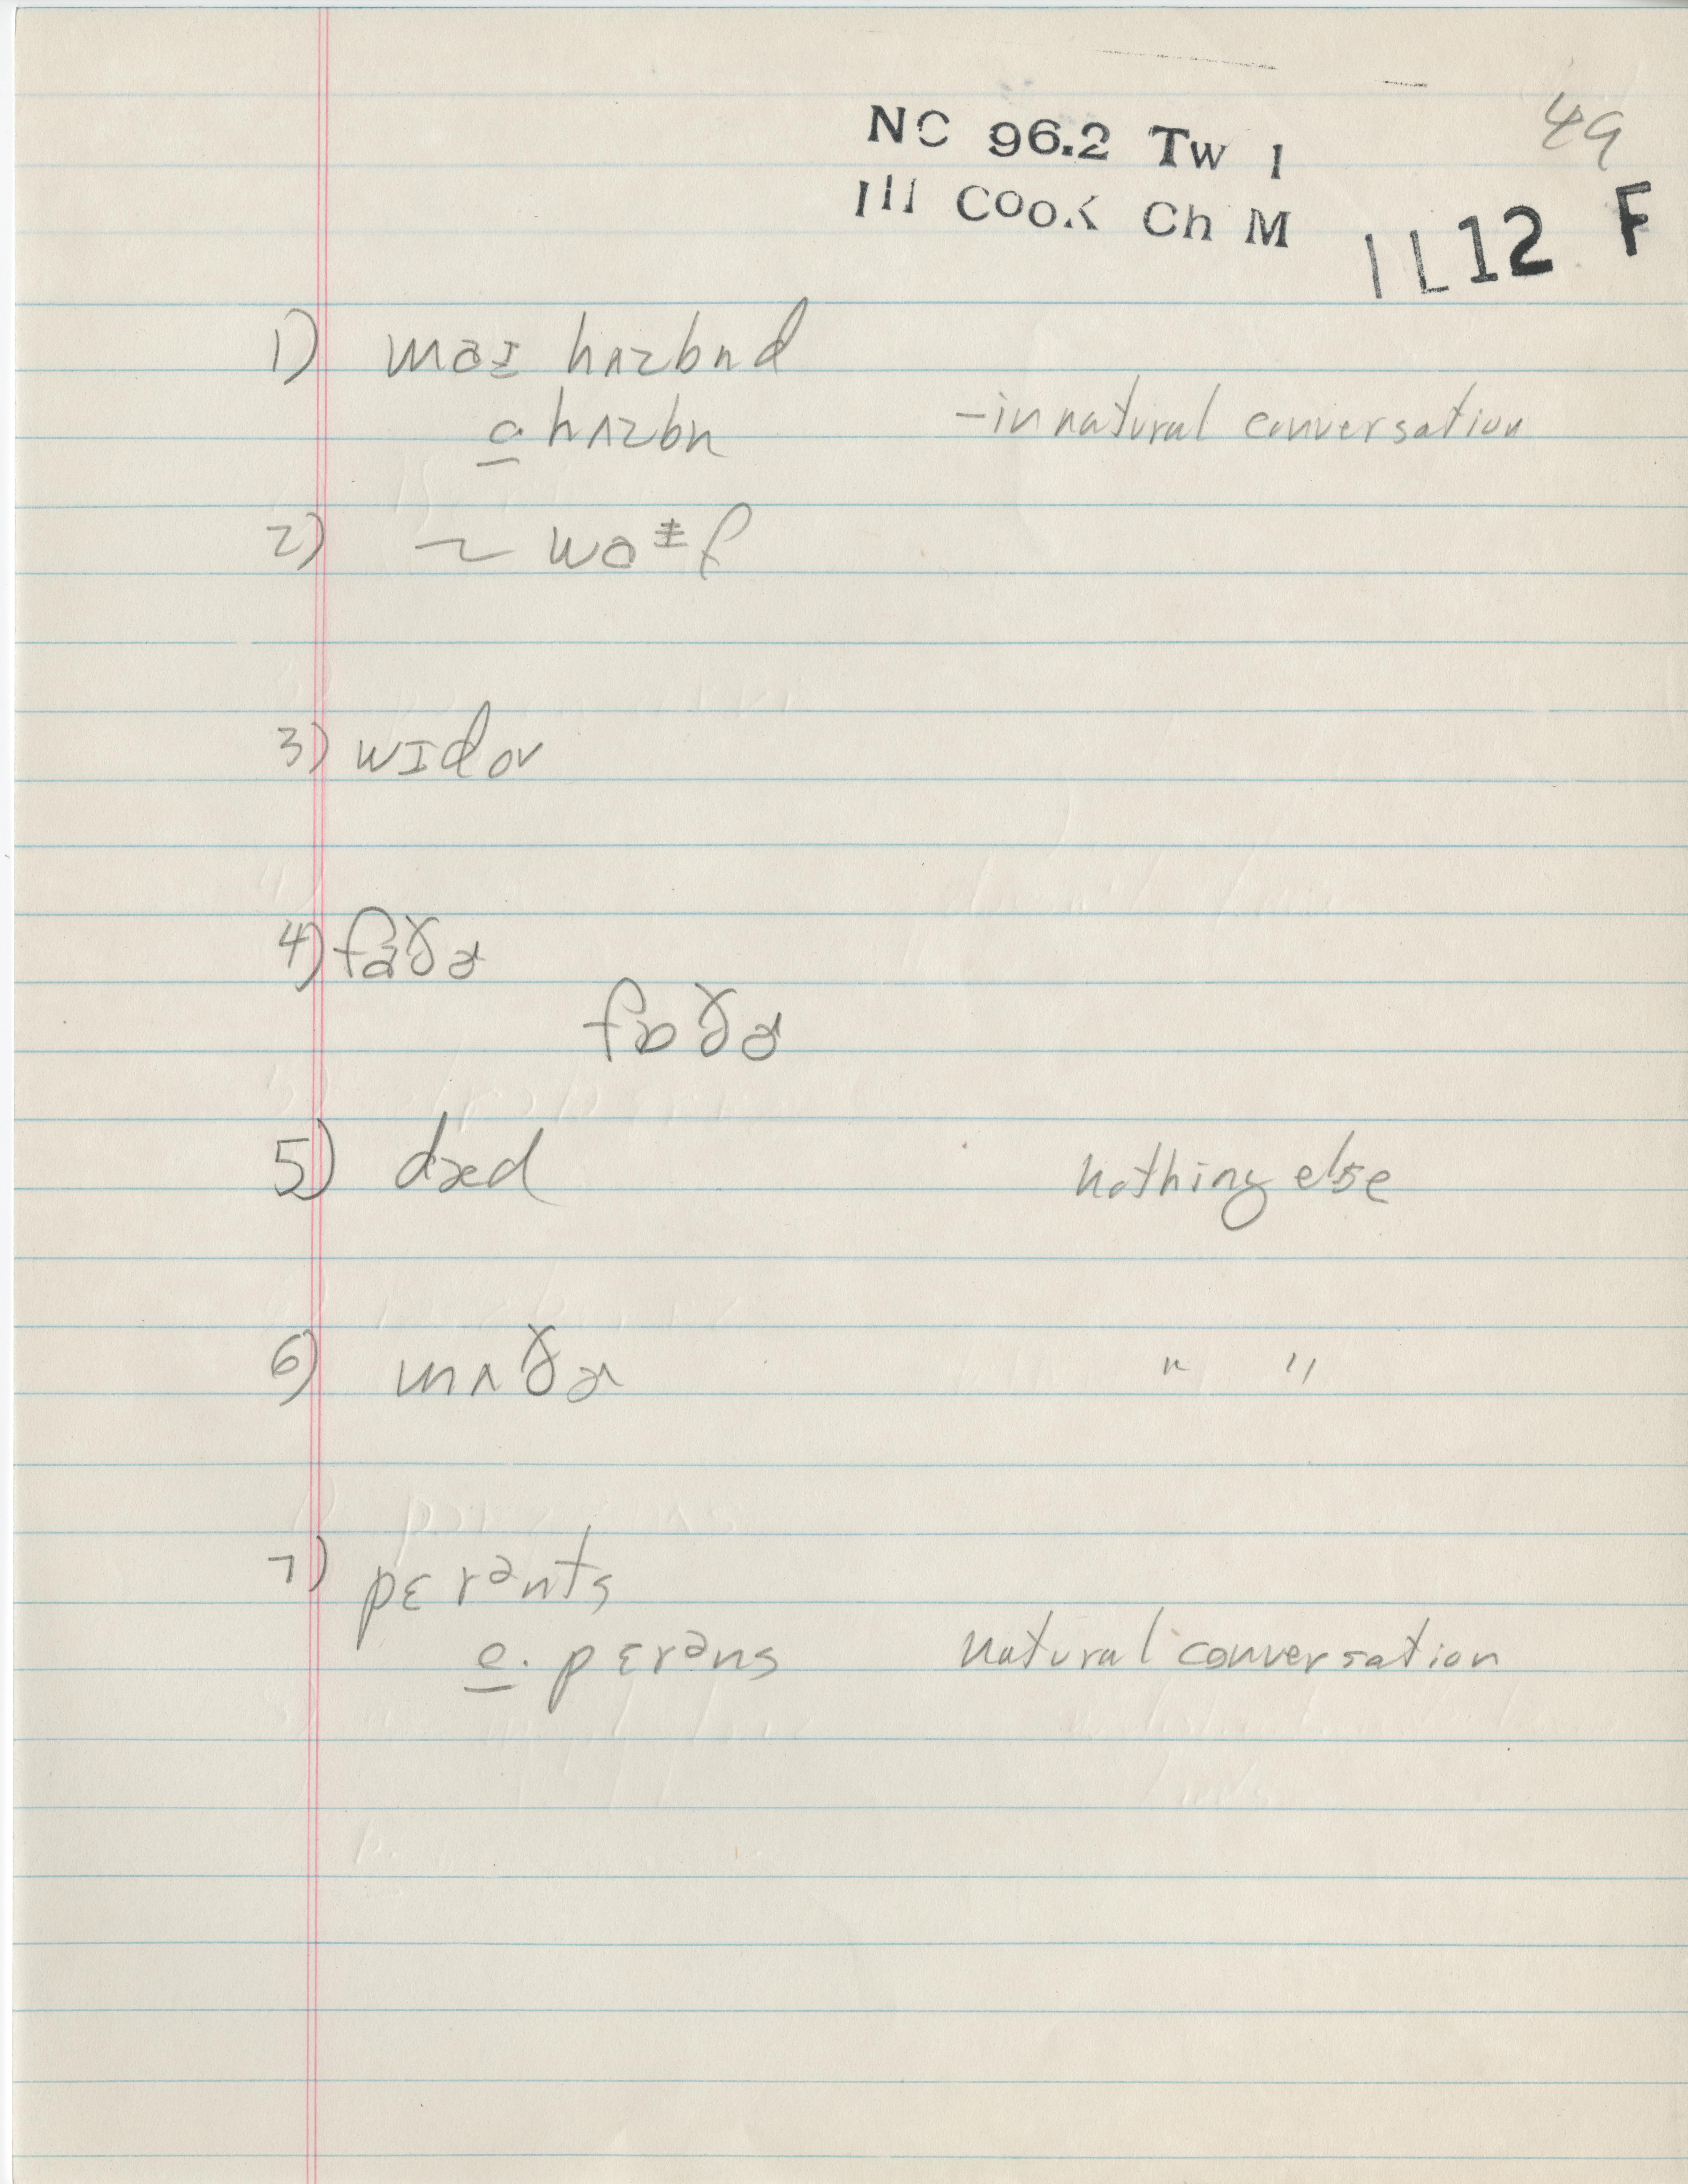 49
NC 96.2 Tw 1
Ill Cook Ch M
IL12 F
1) maɪ hʌzbnd
c. hʌzbn - in natural conversation
2) ~ waᵻf
3) wɪdov
4) faðɚ
fɒðɚ
5) dæd nothing else
6) mʌðɚ " "
7) pɛrənts
c. pɛrəns natural conversation